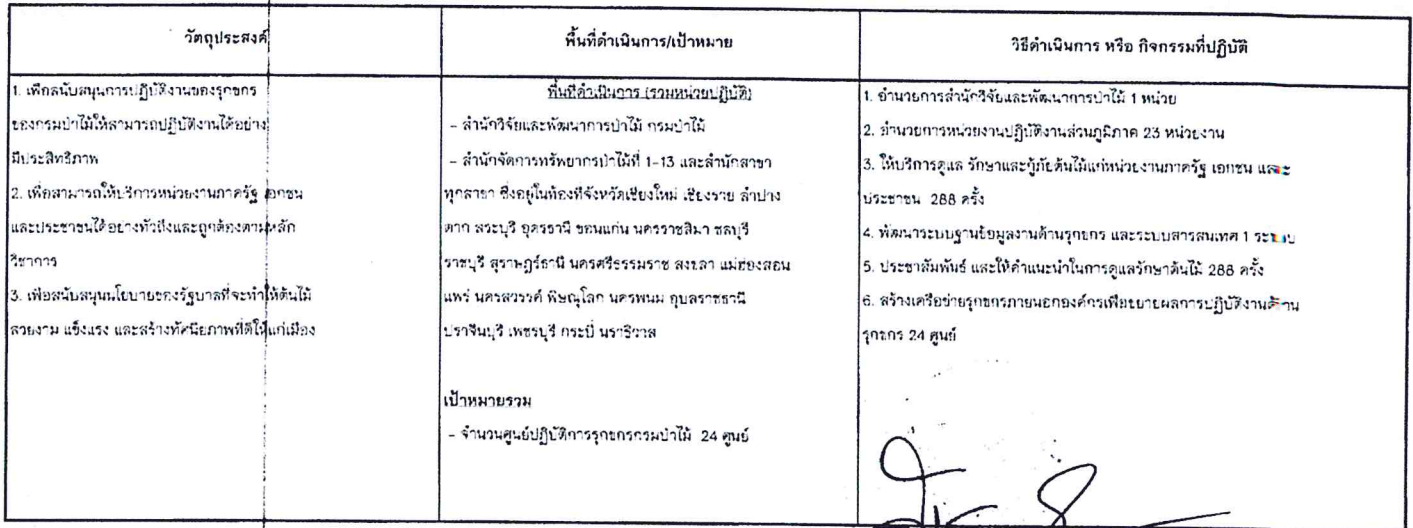 วัตถุประสงค์
1. เพื่อสนับสนุนการปฏิบัติงานของรุกขกร
ของกรมป่าไม้ให้สามารถปฏิบัติงานได้อย่าง
มีประสิทธิภาพ
2. เพื่อสามารถให้บริการหน่วยงานภาครัฐ เอกชน
และประชาชนได้อย่างทั่วถึงและถูกต้องตามหลัก
วิชาการ
3. เพื่อสนับสนุนนโยบายของรัฐบาลที่จะทำให้ต้นไม้
สวยงาม แข็งแรง และสร้างทัศนียภาพที่ดีให้แก่เมือง
พื้นที่ดำเนินการ/เป้าหมาย
พื้นที่ดำเนินการ (รวมหน่วยปฏิบัติ)
- สำนักวิจัยและพัฒนาการป่าไม้ กรมป่าไม้
- สำนักจัดการทรัพยากรป่าไม้ที่ 1-13 และสำนักสาขา
ทุกสาขา ซึ่งอยู่ในท้องที่จังหวัดเชียงใหม่ เชียงราย ลำปาง
ตาก สระบุรี อุดรธานี ขอนแก่น นครราชสีมา ชลบุรี
ราชบุรี สุราษฎร์ธานี นครศรีธรรมราช สงขลา แม่ฮ่องสอน
แพร่ นครสวรรค์ พิษณุโลก นครพนม อุบลราชธานี
ปราจีนบุรี เพชรบุรี กระบี่ นราธิวาส
เป้าหมายรวม
- จำนวนศูนย์ปฏิบัติการรุกขกรกรมป่าไม้ 24 ศูนย์
วิธีดำเนินการ หรือ กิจกรรมที่ปฏิบัติ
1. อำนวยการสำนักวิจัยและพัฒนาการป่าไม้ 1 หน่วย
2. อำนวยการหน่วยงานปฏิบัติงานส่วนภูมิภาค 23 หน่วยงาน
3. ให้บริการดูแล รักษาและกู้ภัยต้นไม้แก่หน่วยงานภาครัฐ เอกชน และ
ประชาชน 288 ครั้ง
4. พัฒนาระบบฐานข้อมูลงานด้านรุกขกร และระบบสารสนเทศ 1 ระบบ
5. ประชาสัมพันธ์ และให้คำแนะนำในการดูแลรักษาต้นไม้ 288 ครั้ง
6. สร้างเครือข่ายรุกขกรภายนอกองค์กรเพื่อขยายผลการปฏิบัติงานด้าน
รุกขกร 24 ศูนย์